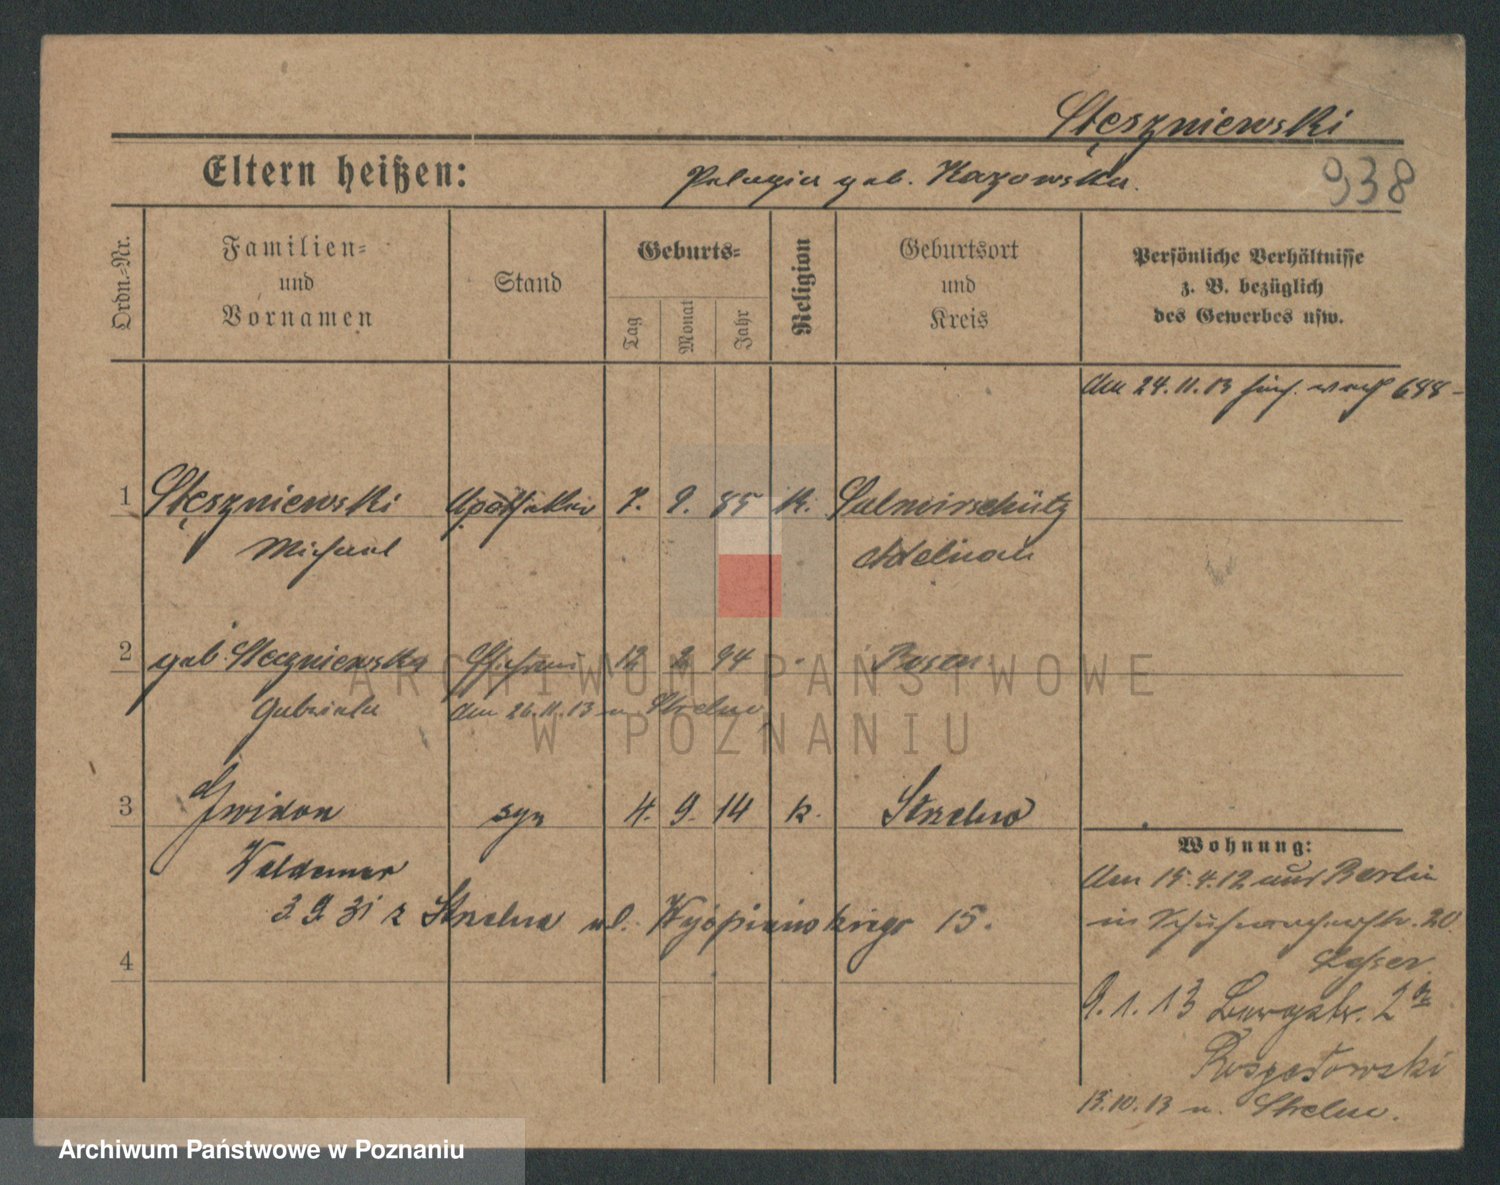 Stęszniewski
Eltern heißen: Pelagia geb. Kazowska.
938
Ordn.=Nr.
Familien=
und
Vornamen
Stand
Geburts=
Tag
Monat
Jahr
Religion
Geburtsort
und
Kreis
Persönliche Verhältnisse
z. B. bezüglich
des Gewerbes usw.
Am 24.11.13 688
1 Stęszniewski Apotheker 7. 9. 85 K. Salmirschütz
Michael Adelnau
2 geb. Stęszniewska 12 2 94 Posen
Gabriela Am 26.11.13 n. Strelno
3 Gwidon syn 4. 9. 14 k. Strzelno
Waldemar
3. 9. 31 z Strzelna ul. Wyspiańskiego 15.
4
Wohnung:
Am 15.4.12 aus Berlin
in Schuhmacherstr. 20.
9.1.13 Burgstr. 2
13.10.13 n. Strelno.
ARCHIWUM PAŃSTWOWE
W POZNANIU
Archiwum Państwowe w Poznaniu